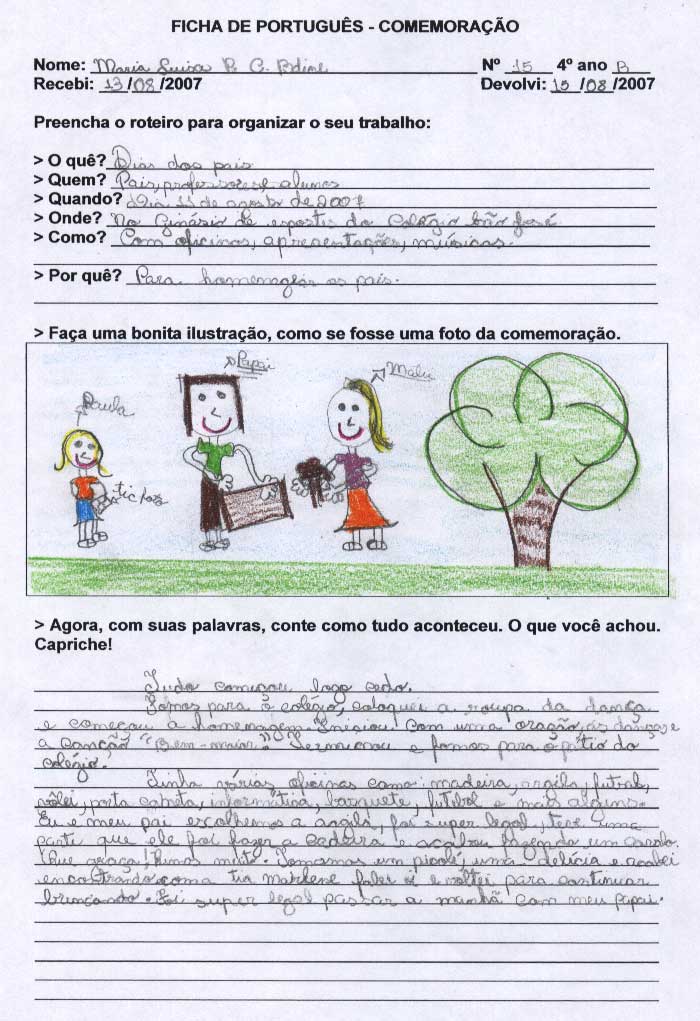 FICHA DE PORTUGUÊS - COMEMORAÇÃO
Nome: Maria Luisa B. C. Nº 15 4º ano B
Recebi: 13/08/2007 Devolvi: 15/08/2007
Preencha o roteiro para organizar o seu trabalho:
> O quê? Dias dos pais
> Quem? Pais, professores e alunos
> Quando? dia 11 de agosto de 2007
> Onde? No Ginásio de esportis do Colégio São José
> Como? Com oficinas, apresentações, músicas.
> Por quê? Para homenagear os pais.
> Faça uma bonita ilustração, como se fosse uma foto da comemoração.
Papai
Malu
Paula
> Agora, com suas palavras, conte como tudo aconteceu. O que você achou.
Capriche!
Tudo começou logo cedo.
Fomos para o colégio, coloquei a roupa da dança
e começou a homenagem. Iniciou com uma oração, as danças e
a canção "Bem-maior". Terminou e fomos para o pátio do
colégio.
Tinha várias oficinas como: madeira, argila, futebol,
vôlei, porta caneta, informática, basquete, futebol e mais alguns.
Eu e meu pai escolhemos a argila, foi super legal, teve uma
parte que ele foi fazer a cadeira e acabou fazendo um
Que graça! Rimos muito. Tomamos um picolé, uma delícia e acabei
encontrando com a tia Marlene falei oi e voltei para continuar
brincando. Foi super legal passar a manhã com meu papai.